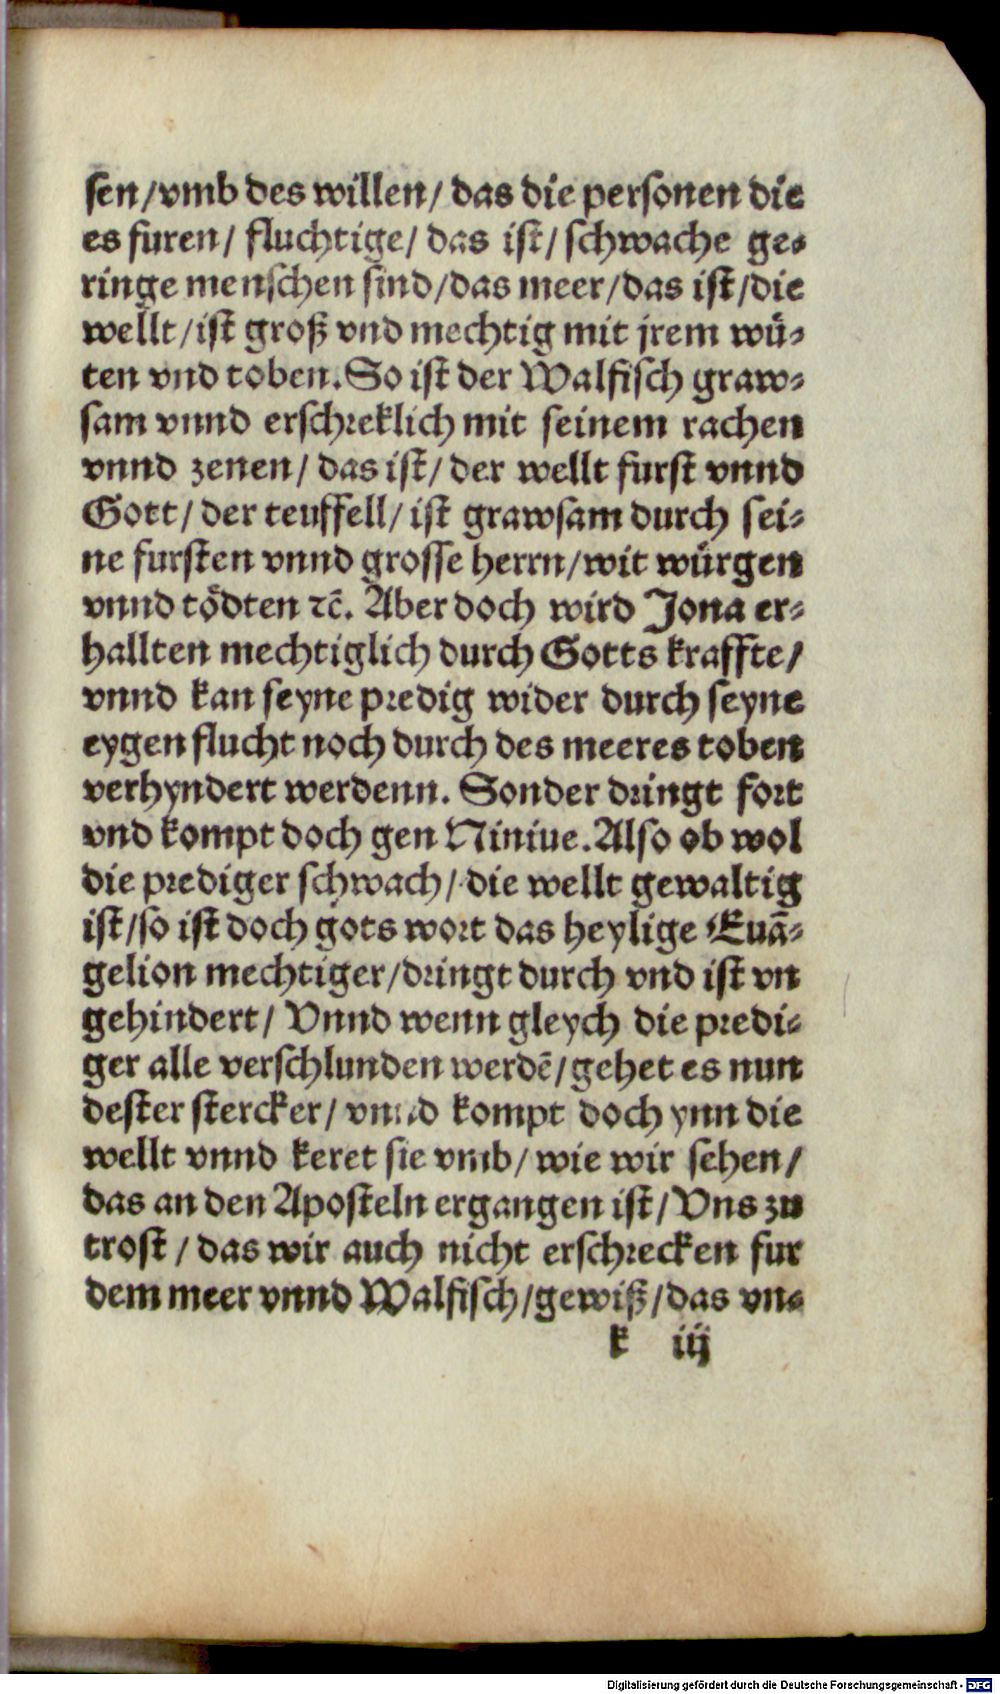 sen/vmb des willen/ das die personen die
es furen/ fluchtige/ das ist/ schwache ge-
ringe menschen sind/das meer/das ist/die
wellt/ist groß vnd mechtig mit jrem wuͤ-
ten vnd toben. So ist der Walfisch graw-
sam vnnd erschreklich mit seinem rachen
vnnd zenen/ das ist/ der wellt furst vnnd
Gott/ der teuffell/ ist grawsam durch sei-
ne fursten vnnd grosse herrn/wit wuͤrgen
vnnd toͤdten ⁊c̃. Aber doch wird Jona er-
hallten mechtiglich durch Gotts kraffte/
vnnd kan seyne predig wider durch seyne
eygen flucht noch durch des meeres toben
verhyndert werdenn. Sonder dringt fort
vnd kompt doch gen Niniue. Also ob wol
die prediger schwach/ die wellt gewaltig
ist/so ist doch gots wort das heylige Euã-
gelion mechtiger/dringt durch vnd ist vn
gehindert/ Vnnd wenn gleych die predi-
ger alle verschlunden werdẽ/ gehet es nun
dester stercker/ vnnd kompt doch ynn die
wellt vnnd keret sie vmb/ wie wir sehen/
das an den Aposteln ergangen ist/ Vns zu
trost / das wir auch nicht erschrecken fur
dem meer vnnd Walfisch/gewiß/das vn-
k iij
Digitalisierung gefördert durch die Deutsche Forschungsgemeinschaft - DFG